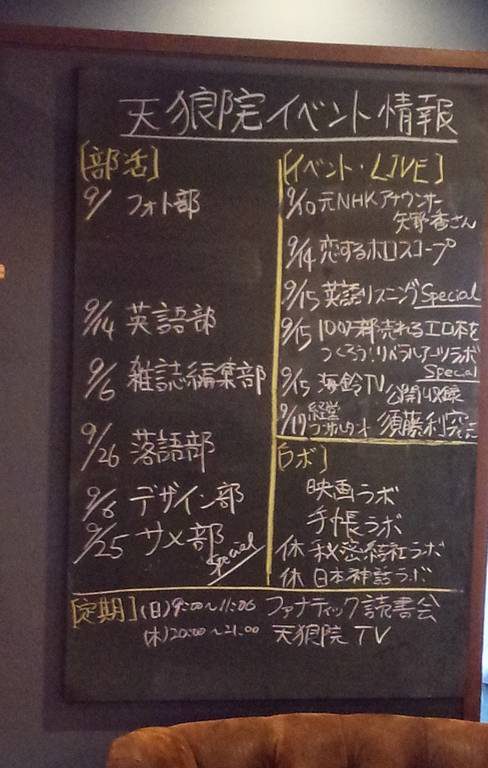 天狼院イベント情報
[部活]
9/ フォト部
9/14 英語部
9/6 雑誌編集部
9/26 落語部
9/8 デザイン部
9/25 サメ部
Special
[イベント・LIVE]
9/10 元NHKアナウンサー
矢野香さん
9/14 恋するホロスコープ
9/15 英語リスニングSpecial
9/15 100万部売れるエロ本を
つくろう!リベラルアーツラボ
Special
9/15 海鈴TV 公開収録
9/19 経営
須藤利究
[ラボ]
映画ラボ
手帳ラボ
休 秘密結社ラボ
休 日本神話ラボ
[定期](日)9:00~11:00 ファナティック読書会
(木)20:00~21:00 天狼院TV